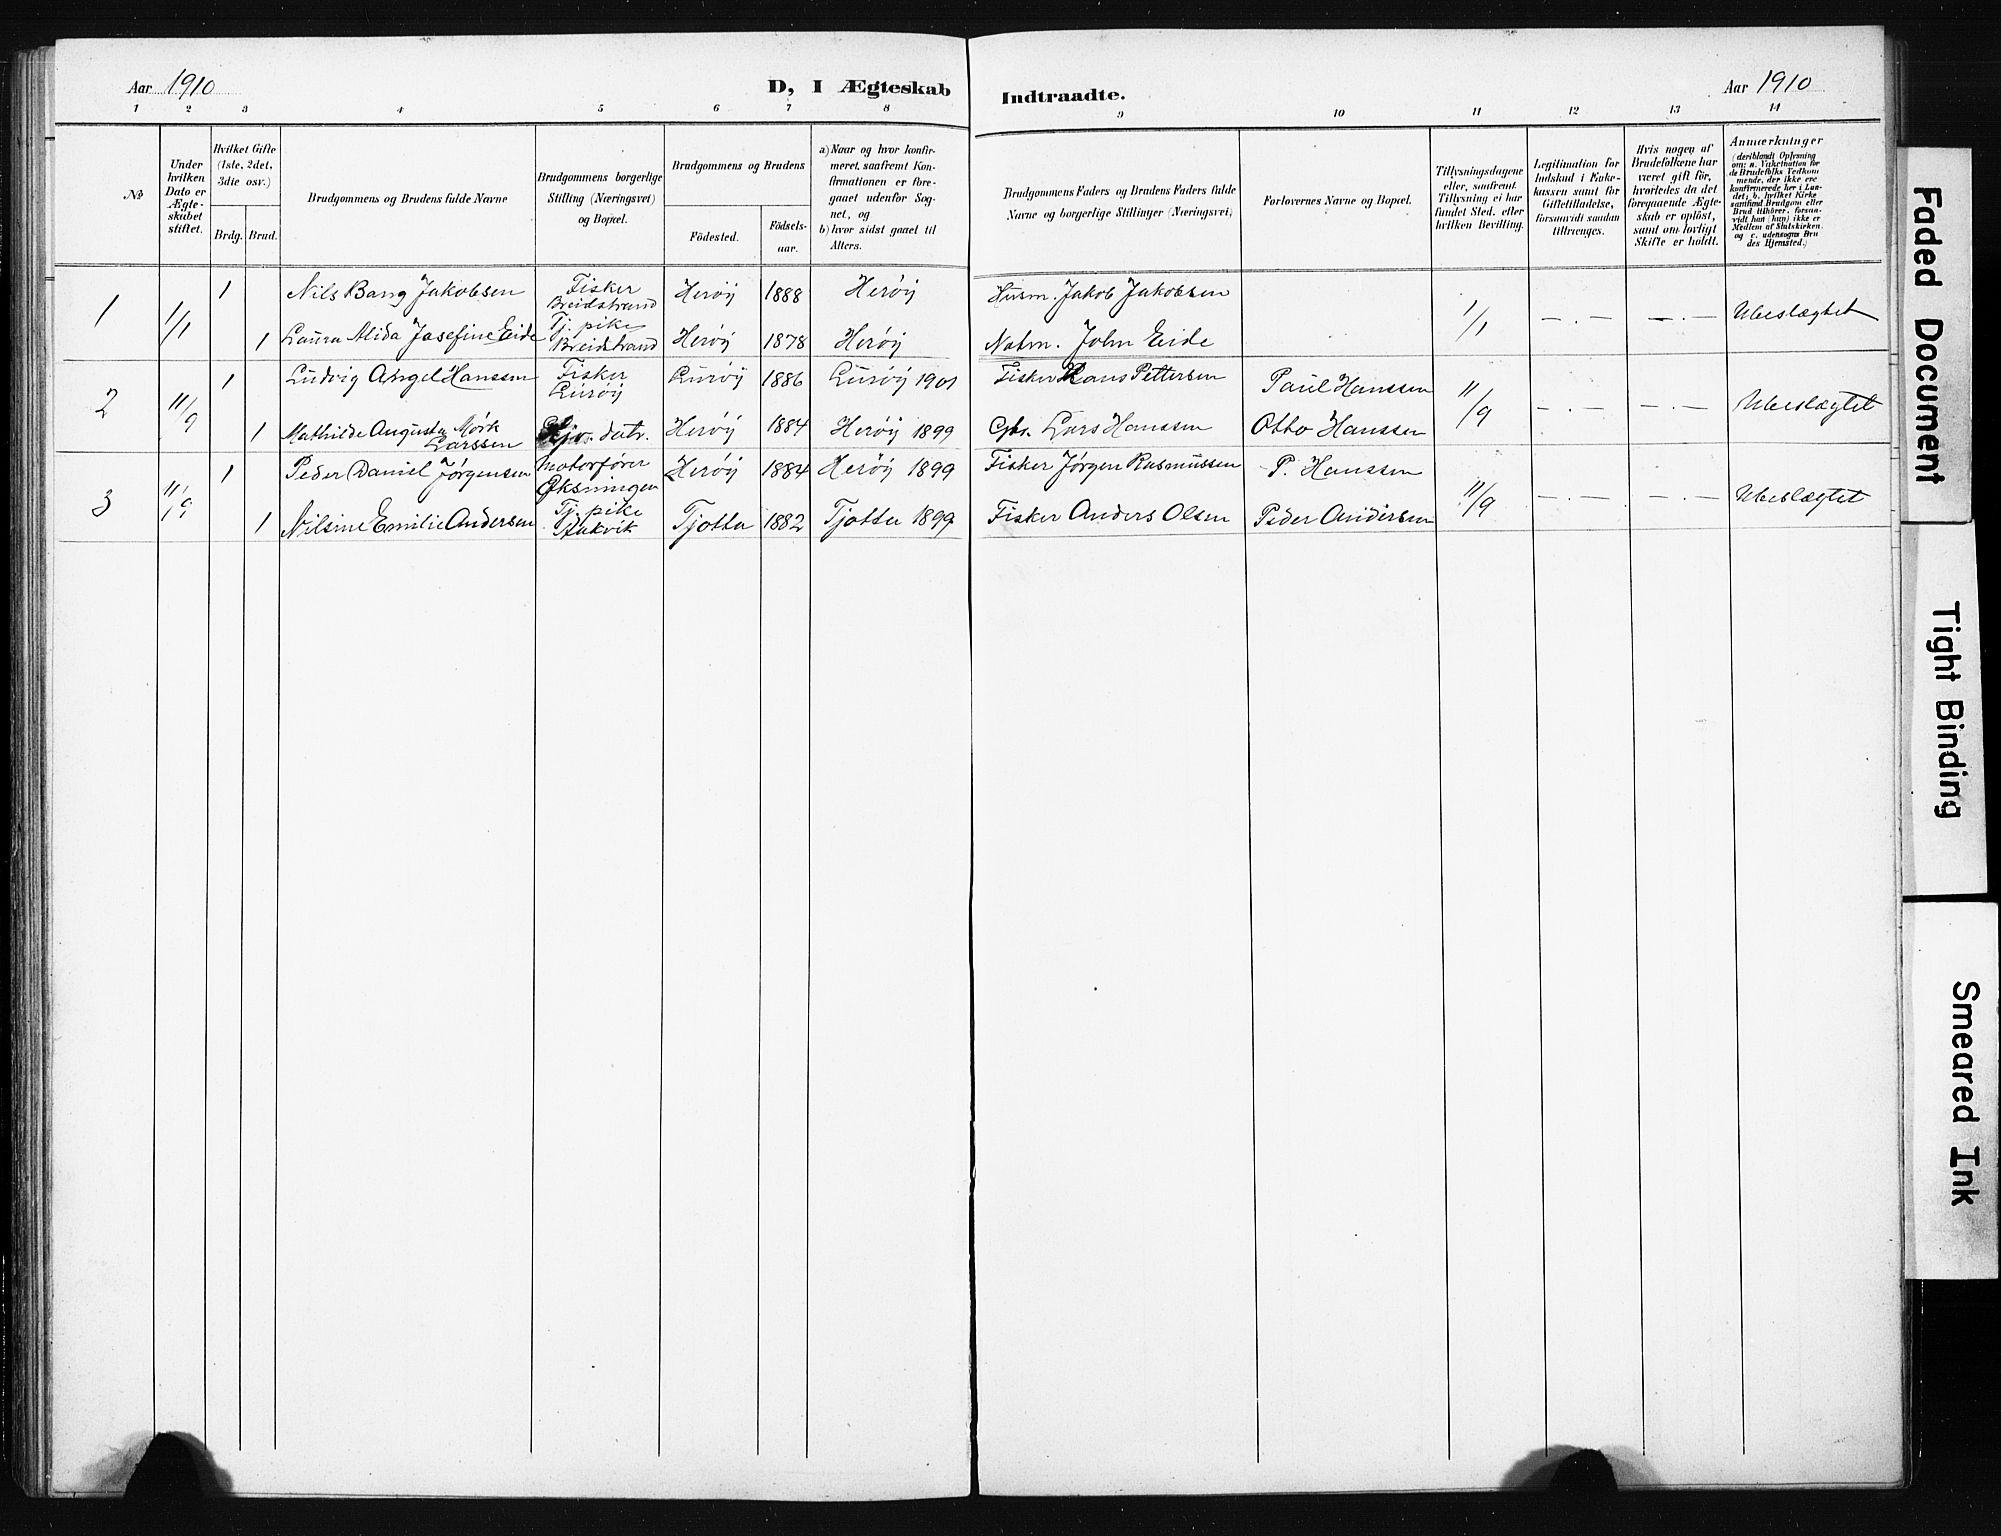 Aar 1910
D, I Ægteskab
Indtraadte.
Aar 1910
1 2 3 4 5 6 7 8 9 10 11 12 13 14
№
Under hvilken Dato er Ægte-skabet stiftet.
Hvilket Gifte (1ste, 2det, 3die osv.)
Brdg. Brud.
Brudgommens og Brudens fulde Navne
Brudgommens borgerlige Stilling (Næringsvei) og Bopæl.
Brudgommens og Brudens
Födested.
Födsels-aar.
a) Naar og hvor konfir-meret, saafremt Kon-firmationen er fore-gaaet udenfor Sog-net, og
b) hvor sidst gaaet til Alters.
Brudgommens Faders og Brudens Faders fulde Navne og borgerlige Stillinger (Næringsvei)
Forlovernes Navne og Bopæl.
Tillysningsdagene eller, saafremt Tillysning ei har fundet Sted, efter hvilken Bevilling.
Legitimation for Indskud i Enke-kassen samt for Giftetilladelse, forsaavidt saadan tiltrænges.
Hvis nogen af Brudefolkene har været gift før, hvorledes da det foregaaende Ægte-skab er oplöst, samt om lovligt Skifte er holdt.
Anmærkninger
(deriblandt Oplysning om: a. Vakcination for de Brudefolks Vedkom-mende, der ikke ere konfirmerede her i Lan-det; b. hvilket Kirke-samfund Brudgom eller Brud tilhörer, forsaa-vidt han (hun) ikke er Medlem af Statskirken, og c. udensogns Bru-des Hjemsted.)
1 1/1 1 Nils Bang Jakobsen Fisker Breidstrand Herøÿ 1888 Herøÿ Husm. Jakob Jakobsen 1/1 — . — — . — Ubeslægtet
1 Laura Alida Josefine Eide Tj. pike Breidstrand Herøÿ 1878 Herøÿ John Eide
2 11/9 1 Ludvig Angel Hanssen Fisker Lurøÿ Lurøÿ 1886 Lurøÿ 1901 Fisker Hans Pettersen Paul Hanssen 11/9 — . — — . — Ubeslægtet
1 Mathilde Augusta Mørk Larssen datr. Herøÿ 1884 Herøÿ 1899 Gbr. Lars Hanssen Otto Hanssen
3 11/9 1 Peder Daniel Jørgensen Motorfører Øksningen Herøÿ 1884 Herøÿ 1899 Fisker Jørgen Rasmussen P. Hanssen 11/9 — . — — . — Ubeslægtet
1 Nilsine Emilie Andersen Tj. pike Tjøtta 1882 Tjøtta 1899 Fisker Anders Olsen Peder Andersen
Faded Document
Tight Binding
Smeared Ink